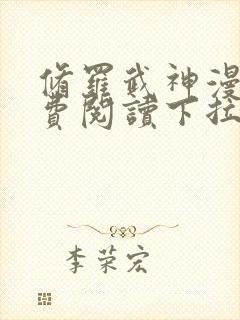 脩羅武神漫
費閱讀下拉
李荣宏